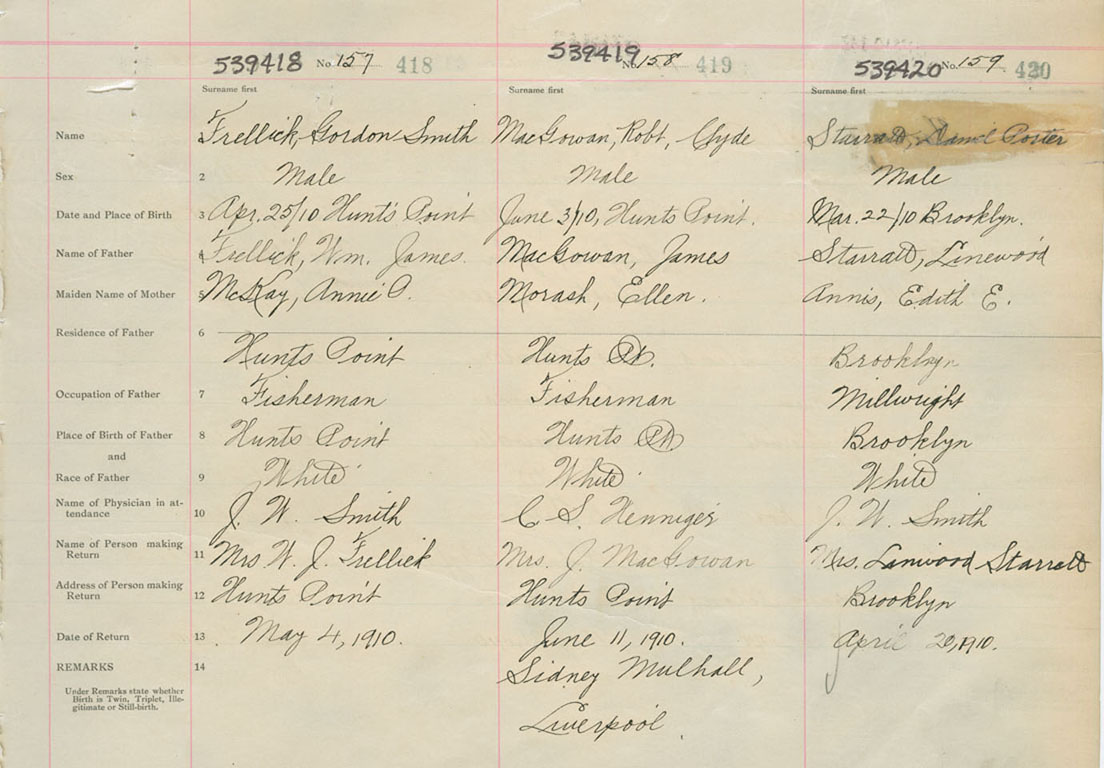 539418 No. 157 418 539419 No. 158 419 539420 No. 159 420
Surname first Surname first Surname first
Name Frellick, Gordon Smith MacGowan, Robt, Clyde Starratt, Foster
Sex 2 Male Male Male
Date and Place of Birth 3 Apr. 25/10 Hunts Point June 3/10, Hunts Point. Mar. 22/10 Brooklyn.
Name of Father 4 Frellick, Wm. James. MacGowan, James Starratt, Linewood
Maiden Name of Mother 5 McKay, Annie Morash, Ellen. Annis, Edith E.
Residence of Father 6
Hunts Point Hunts Pt. Brooklyn
Occupation of Father 7 Fisherman Fisherman Millwright
Place of Birth of Father 8 Hunts Point Hunts Pt Brooklyn
and
Race of Father 9 White White White
Name of Physician in at-
tendance 10 J. W. Smith C S. Henniger J. W. Smith
Name of Person making
Return 11 Mrs W. J. Frellick Mrs. J. MacGowan Mrs. Linwood Starratt
Address of Person making
Return 12 Hunts Point Hunts Point Brooklyn
Date of Return 13 May 4, 1910. June 11, 1910. April 20, 1910.
REMARKS 14 Sidney Mulhall,
Under Remarks state whether
Birth is Twin, Triplet, Ille-
gitimate or Still-birth.
Liverpool